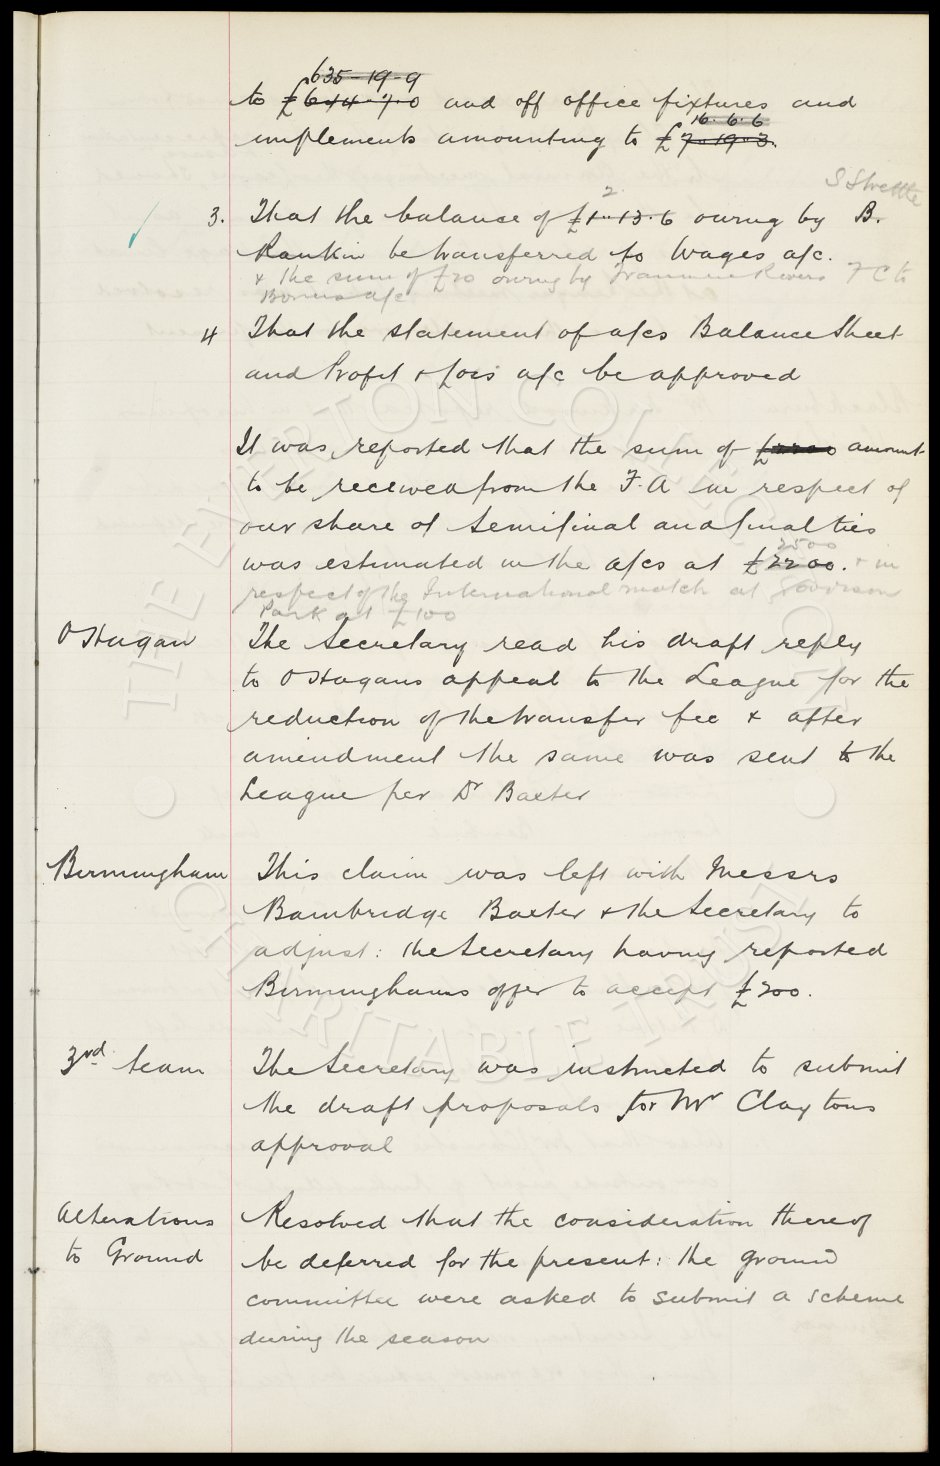 635-19-9
to £644-7-0 and off office fixtures and
16. 6. 6
implements amounting to £7-19-3.
S Strettle
2
3. That the balance of £1-13.6 owing by B.
Rankin be transferred to Wages a/c.
& the sum of £20 owing by Tranmere Rovers F C to
Bonus a/c
4 That the statement of a/cs Balance Sheet
and Profit & Loss a/c be approved
It was reported that the sum of amount
to be received from the F.A in respect of
our share of Semifinal and final ties
2500
was estimated in the a/cs at £2200. & in
respect of the International match at Goodison
Park at £100
O Hagan The Secretary read his draft reply
to O Hagans appeal to the League for the
reduction of the transfer fee & after
amendment the same was sent to the
League per Dr Baxter
Birmingham This claim was left with Messrs
Bainbridge Baxter & the Secretary to
adjust: the Secretary having reported
Birminghams offer to accept £200.
3rd team The Secretary was instructed to submit
the draft proposals for Mr Claytons
approval
Alterations Resolved that the consideration thereof
to Ground be deferred for the present: the ground
committee were asked to submit a scheme
during the season
THE EVERTON COLLECTION
CHARITABLE TRUST